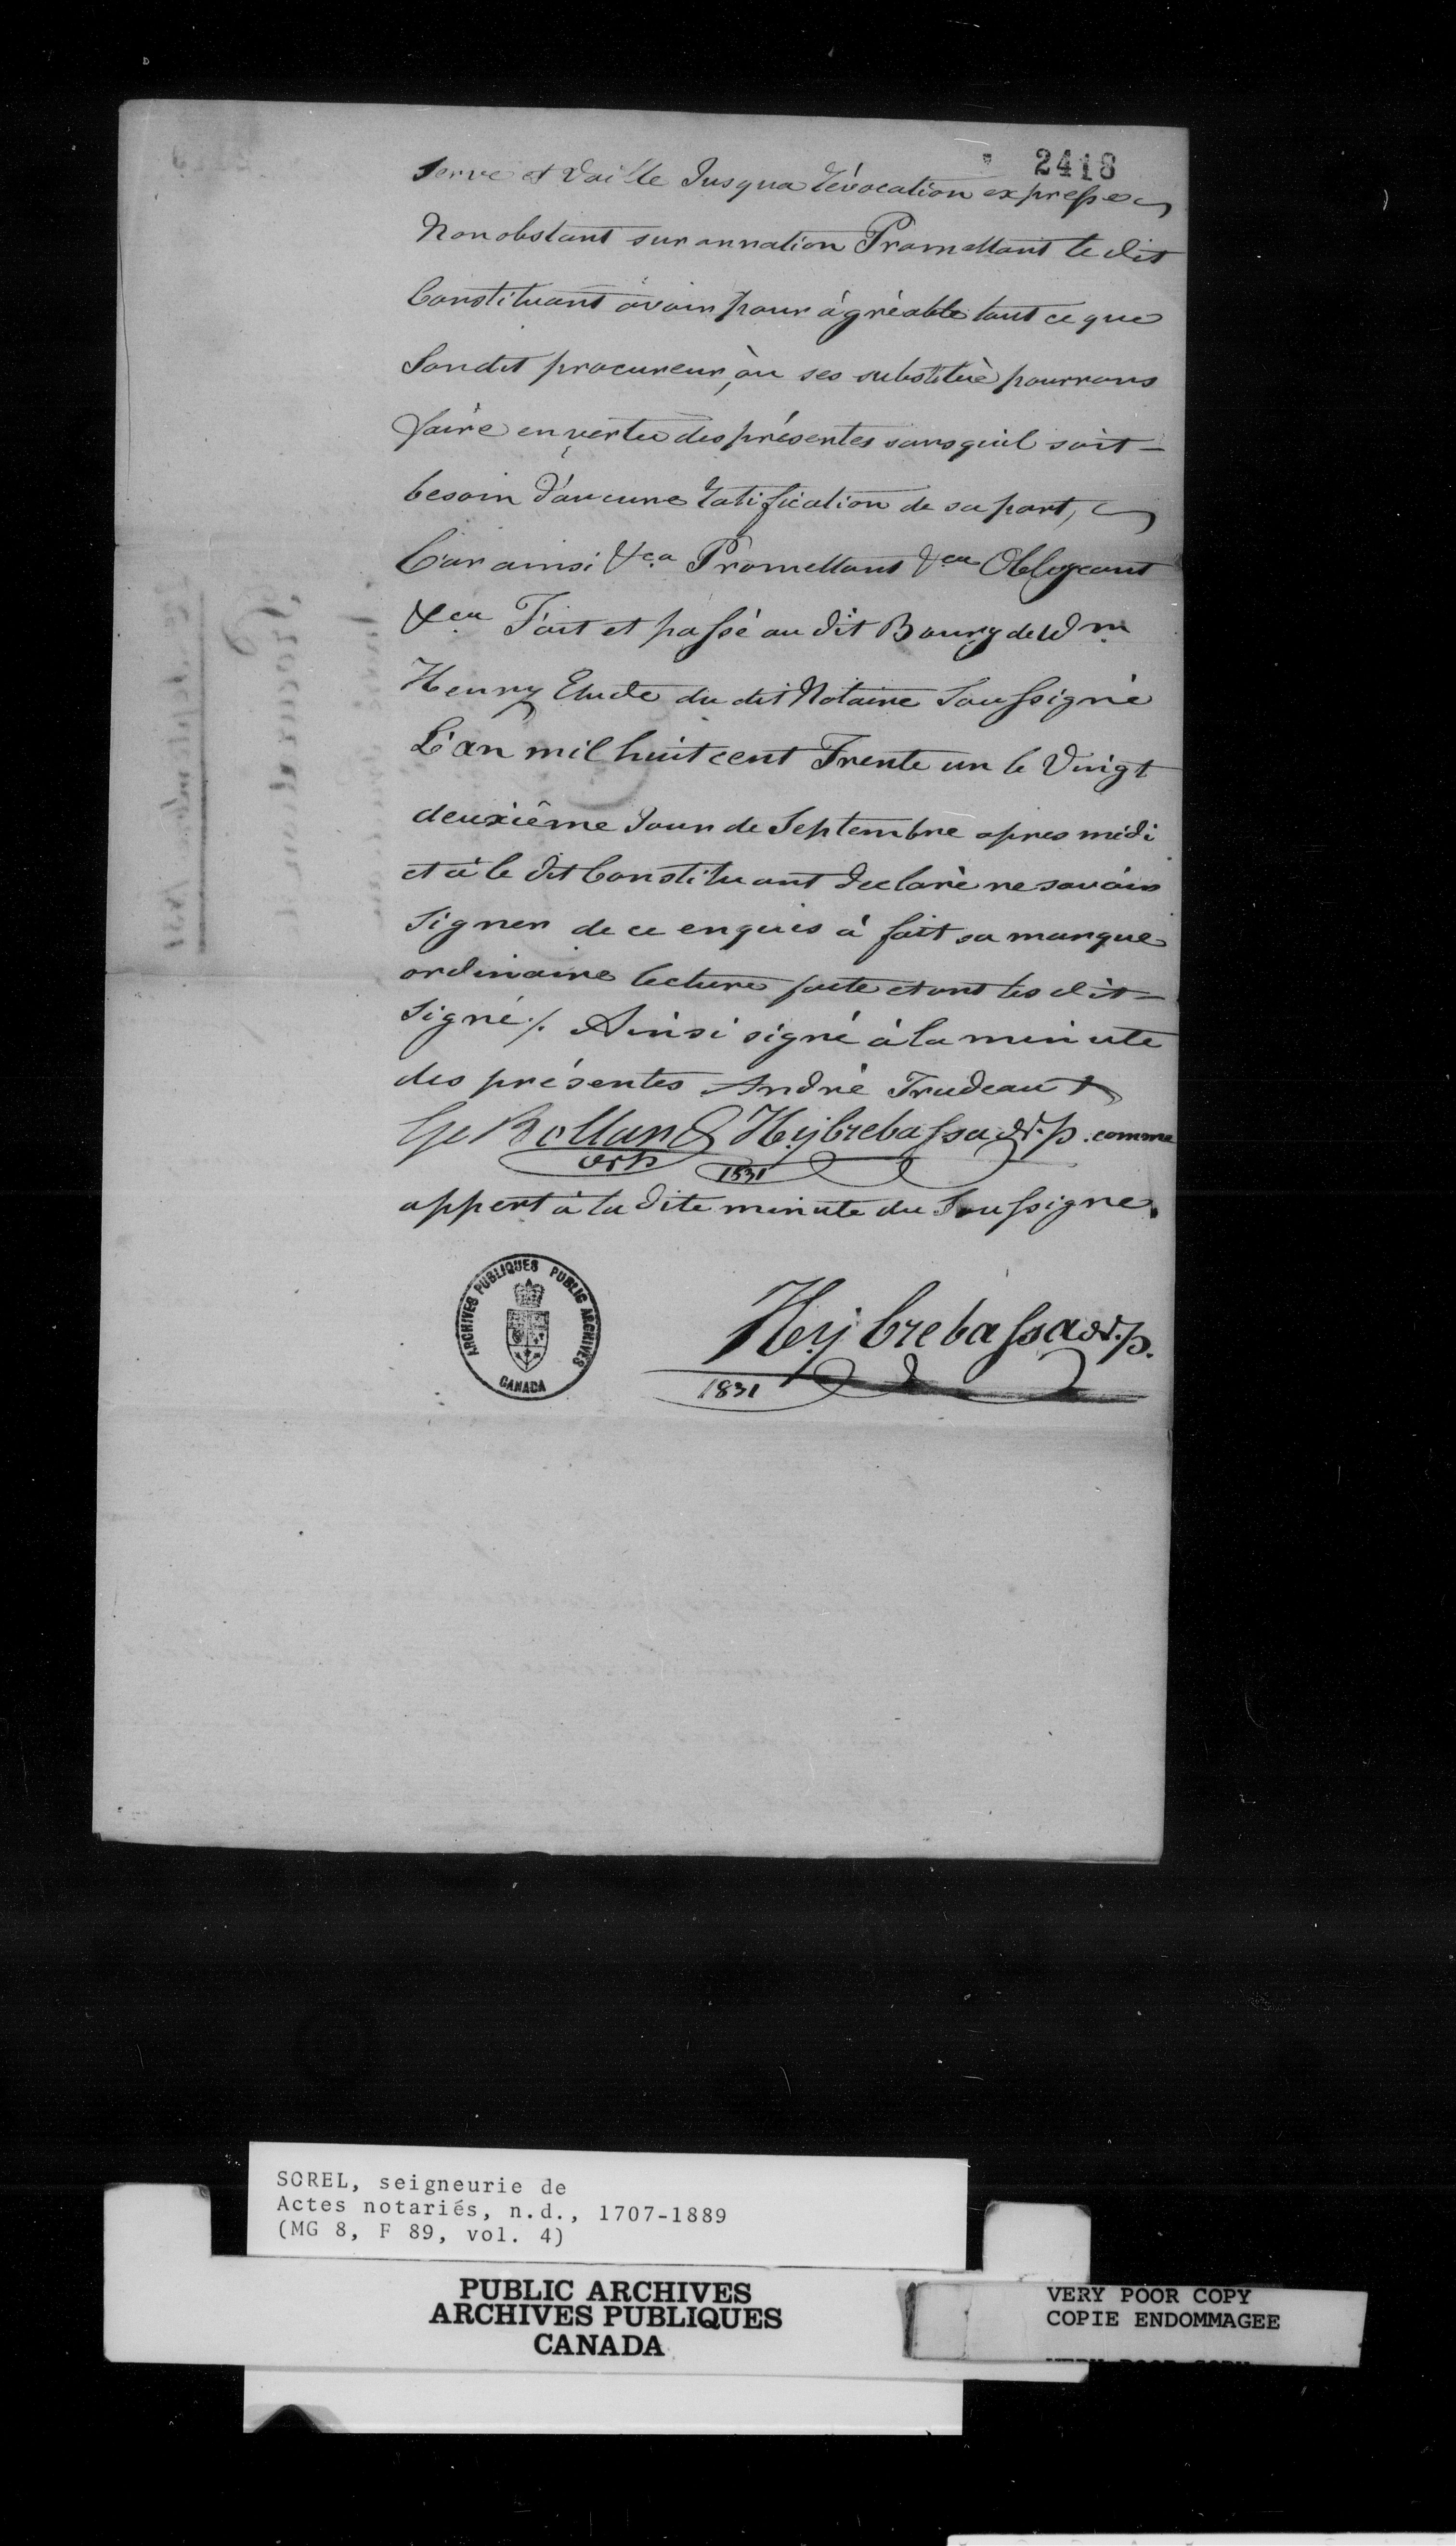 2418
Serve et Vaille Jusqua Révocation expresse
Nonobstant surannation Promettant le dit
Constituant avoir pour àgréable tout ce que
Sondit procureur, òu ses substituè pourrons
faire en vertu des présentes sans quil soit -
besoin d'aucune Ratification de sa part,
Car ainsi &ca Promettant &ca Obligeant
&ca Fait et passé au dit Bourg de Wm
Henry Etude du dit Notaire Soussigné
L'an mil huit cent Trente un le Vingt
deuxième Jour de Septembre apres médi
et à le dit Constituant declaré ne savoir
Signer de ce enquis à fait sa marque
ordinaire lecture faite et ont les dit -
Signé ./. Ainsi signé à la minute
des présentes André Trudeau +
comme
1831
appert à la dite minute du Soussigné.
ARCHIVES PUBLIQUES PUBLIC ARCHIVES
CANADA
1831
SOREL, seigneurie de
Actes notariés, n.d., 1707-1889
(MG 8, F 89, vol. 4)
PUBLIC ARCHIVES
ARCHIVES PUBLIQUES
CANADA
VERY POOR COPY
COPIE ENDOMMAGEE